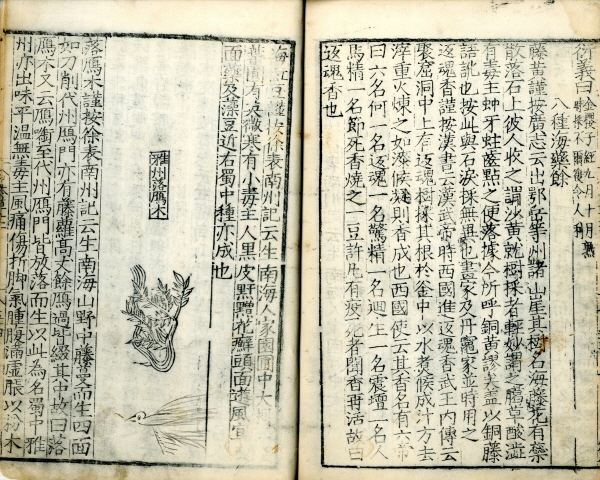 衍義曰金櫻子經九月十月熟
時採不爾復令人利
八種海藥餘
藤黃謹按廣志云出鄂岳等州諸山崖其樹石海藤花有蘂
散落石上彼人收之謂沙黃就樹採者輕妙謂之臘草酸澀
有毒主蚛牙蛀齒點之便落據今所呼銅黃謬矣蓋以銅藤
語訛也按此與石淚採無異也畫家及丹竈家並時用之
返魂香謹按漢書云漢武帝時西國進返魂香武王內傳云
聚窟洞中上有返魂樹採其根於釜中以水煮候成汁方去
滓重火煉之如漆候凝則香成也西國使云其香名有六帝
曰六名何一名返魂一名驚精一名迴生一名震壇一名人
馬精一名節死香燒之一豆許凡有疫死者聞香再活故曰
返魂香也
海紅豆謹按徐表南州記云生南海人家園圃中大樹而生
葉圓有莢微寒有小毒主人黑皮䵟黯花癬頭面遊風宜
面藥及藻豆近右蜀中種亦成也
雅州落鴈木
落鴈木謹按徐表南州記云生南海山野中藤蔓而生四面
如刀削代州鴈門亦有藤蘿高丈餘鴈過皆綴其中故曰落
鴈木又云鴈銜至代州鴈門皆放落而生以此為名蜀中雅
州亦出味平溫無毒主風痛傷折脚氣腫腹滿虛脹以粉木